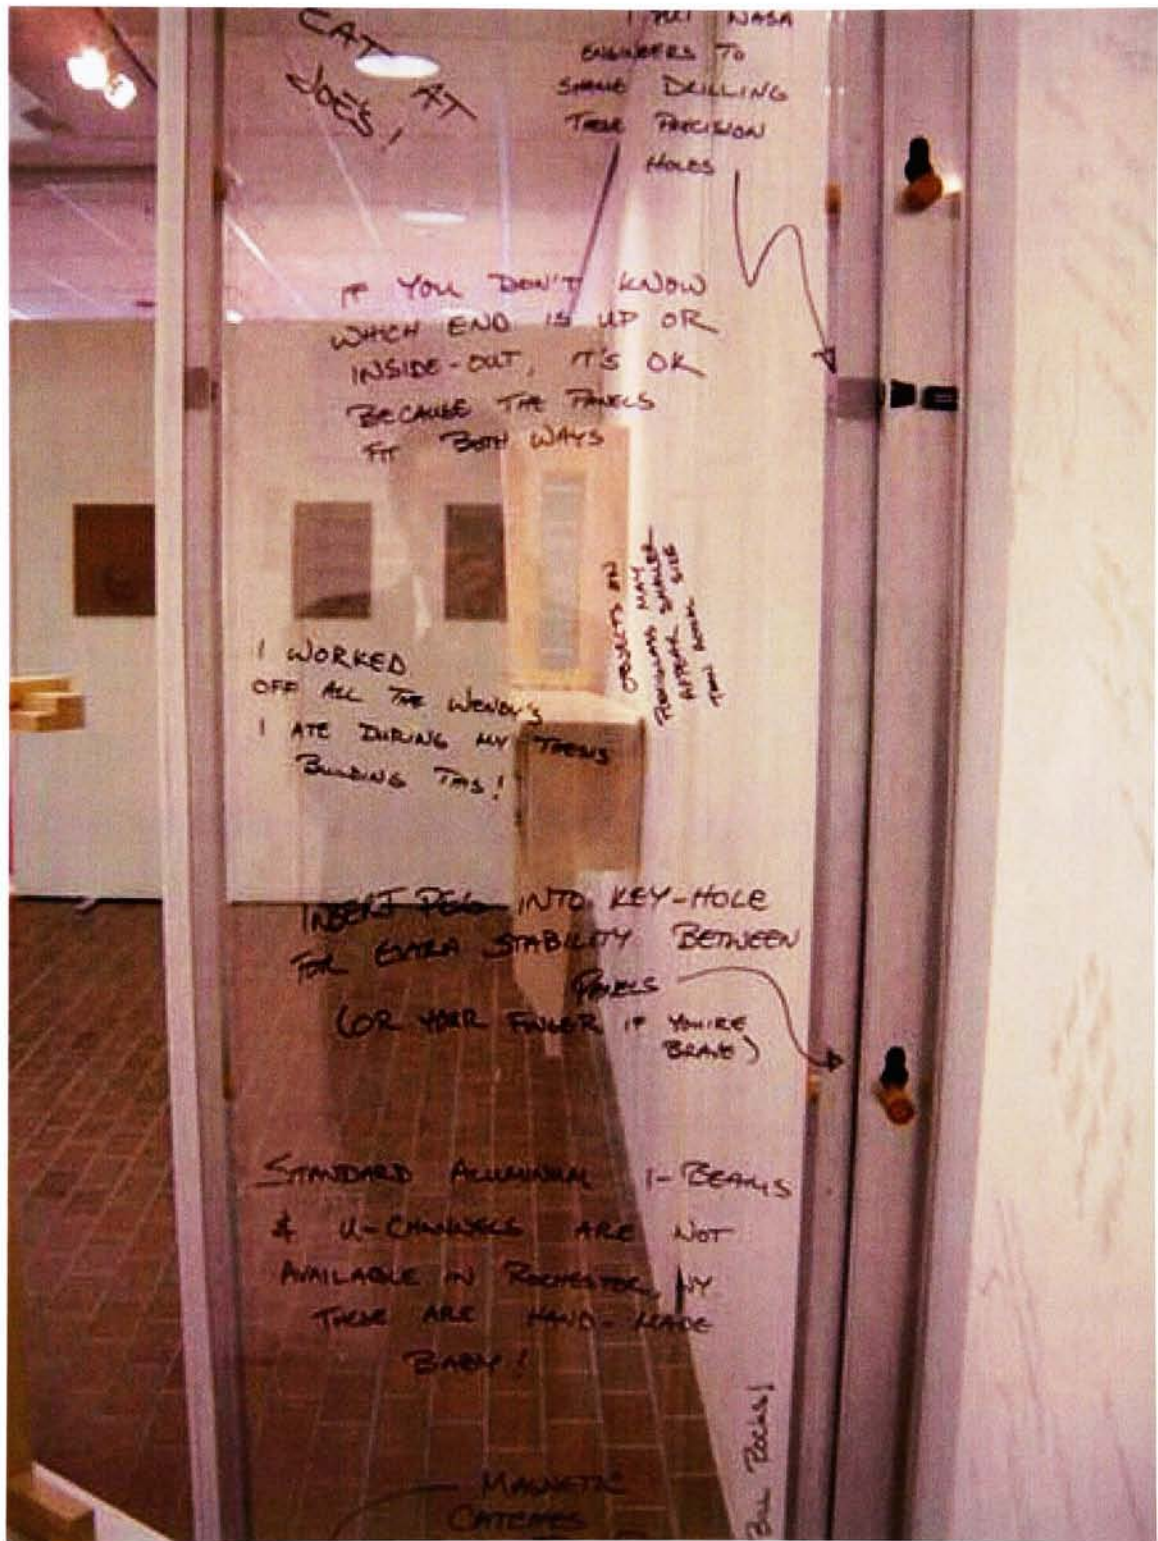 EAT AT
JOE'S!
I PUT NASA
ENGINEERS TO
SHAME DRILLING
THESE PRECISION
HOLES
IF YOU DON'T KNOW
WHICH END IS UP OR
INSIDE-OUT, IT'S OK
BECAUSE THE PANELS
FIT BOTH WAYS
OBJECTS ON
PLEXIGLASS MAY
APPEAR SMALLER
THAN ACTUAL SIZE
I WORKED
OFF ALL THE WENDY'S
I ATE DURING MY THESIS
BUILDING THIS!
INSERT PEG INTO KEY-HOLE
FOR EXTRA STABILITY BETWEEN
PANELS
(OR YOUR FINGER IF YOU'RE
BRAVE)
STANDARD ALUMINUM I-BEAMS
& U-CHANNELS ARE NOT
AVAILABLE IN ROCHESTER, NY
THESE ARE HAND-MADE
BABY!
BILL ROCKS!
MAGNETIC
CATCHES